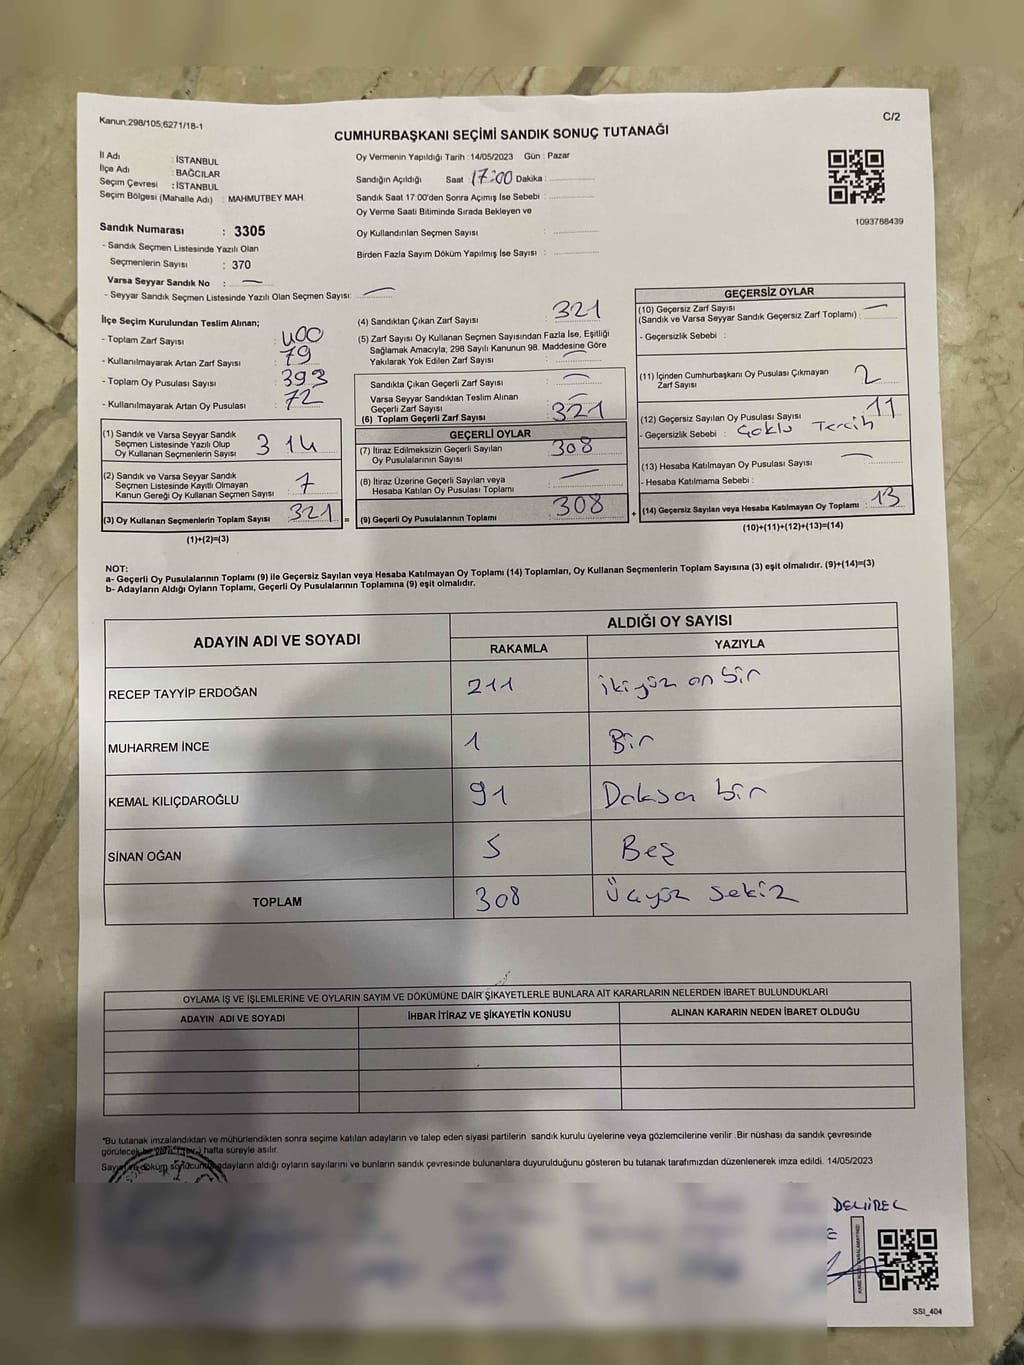 Kanun;298/105;6271/18-1
C/2
CUMHURBAŞKANI SEÇİMİ SANDIK SONUÇ TUTANAĞI
İl Adı : İSTANBUL
İlçe Adı : BAĞCILAR
Seçim Çevresi : İSTANBUL
Seçim Bölgesi (Mahalle Adı) : MAHMUTBEY MAH.
Oy Vermenin Yapıldığı Tarih : 14/05/2023 Gün : Pazar
Sandığın Açıldığı Saat : 17:00 Dakika :
Sandık Saat 17:00'den Sonra Açımış İse Sebebi :
Oy Verme Saati Bitiminde Sırada Bekleyen ve
Oy Kullandırılan Seçmen Sayısı :
Birden Fazla Sayım Döküm Yapılmış İse Sayısı :
1093788439
Sandık Numarası : 3305
- Sandık Seçmen Listesinde Yazılı Olan
Seçmenlerin Sayısı : 370
Varsa Seyyar Sandık No : —
- Seyyar Sandık Seçmen Listesinde Yazılı Olan Seçmen Sayısı: —
İlçe Seçim Kurulundan Teslim Alınan;
- Toplam Zarf Sayısı : 400
- Kullanılmayarak Artan Zarf Sayısı : 79
- Toplam Oy Pusulası Sayısı : 393
- Kullanılmayarak Artan Oy Pusulası : 72
(1) Sandık ve Varsa Seyyar Sandık
Seçmen Listesinde Yazılı Olup
Oy Kullanan Seçmenlerin Sayısı 314
(2) Sandık ve Varsa Seyyar Sandık
Seçmen Listesinde Kayıtlı Olmayan
Kanun Gereği Oy Kullanan Seçmen Sayısı 7
(3) Oy Kullanan Seçmenlerin Toplam Sayısı 321
(1)+(2)=(3)
(4) Sandıktan Çıkan Zarf Sayısı : 321
(5) Zarf Sayısı Oy Kullanan Seçmen Sayısından Fazla İse, Eşitliği
Sağlamak Amacıyla; 298 Sayılı Kanunun 98. Maddesine Göre
Yakılarak Yok Edilen Zarf Sayısı : —
Sandıkta Çıkan Geçerli Zarf Sayısı : —
Varsa Seyyar Sandıktan Teslim Alınan
Geçerli Zarf Sayısı : —
(6) Toplam Geçerli Zarf Sayısı : 321
GEÇERLİ OYLAR
(7) İtiraz Edilmeksizin Geçerli Sayılan
Oy Pusulalarının Sayısı : 308
(8) İtiraz Üzerine Geçerli Sayılan veya
Hesaba Katılan Oy Pusulası Toplamı : —
= (9) Geçerli Oy Pusulalarının Toplamı : 308
GEÇERSİZ OYLAR
(10) Geçersiz Zarf Sayısı
(Sandık ve Varsa Seyyar Sandık Geçersiz Zarf Toplamı) : —
- Geçersizlik Sebebi :
(11) İçinden Cumhurbaşkanı Oy Pusulası Çıkmayan
Zarf Sayısı : 2
(12) Geçersiz Sayılan Oy Pusulası Sayısı : 11
- Geçersizlik Sebebi : Çoklu Tercih
(13) Hesaba Katılmayan Oy Pusulası Sayısı : —
- Hesaba Katılmama Sebebi :
+ (14) Geçersiz Sayılan veya Hesaba Katılmayan Oy Toplamı : 13
(10)+(11)+(12)+(13)=(14)
NOT:
a- Geçerli Oy Pusulalarının Toplamı (9) ile Geçersiz Sayılan veya Hesaba Katılmayan Oy Toplamı (14) Toplamları, Oy Kullanan Seçmenlerin Toplam Sayısına (3) eşit olmalıdır. (9)+(14)=(3)
b- Adayların Aldığı Oyların Toplamı, Geçerli Oy Pusulalarının Toplamına (9) eşit olmalıdır.
ADAYIN ADI VE SOYADI
ALDIĞI OY SAYISI
RAKAMLA YAZIYLA
RECEP TAYYİP ERDOĞAN 211 ikiyüz on bir
MUHARREM İNCE 1 Bir
KEMAL KILIÇDAROĞLU 91 Doksan bir
SİNAN OĞAN 5 Beş
TOPLAM 308 Üçyüz sekiz
OYLAMA İŞ VE İŞLEMLERİNE VE OYLARIN SAYIM VE DÖKÜMÜNE DAİR ŞİKAYETLERLE BUNLARA AİT KARARLARIN NELERDEN İBARET BULUNDUKLARI
ADAYIN ADI VE SOYADI İHBAR İTİRAZ VE ŞİKAYETİN KONUSU ALINAN KARARIN NEDEN İBARET OLDUĞU
*Bu tutanak imzalandıktan ve mühürlendikten sonra seçime katılan adayların ve talep eden siyasi partilerin sandık kurulu üyelerine veya gözlemcilerine verilir .Bir nüshası da sandık çevresinde
görülecek bir yere (1) hafta süreyle asılır.
Sayım ve döküm sonucunda adayların aldığı oyların sayılarını ve bunların sandık çevresinde bulunanlara duyurulduğunu gösteren bu tutanak tarafımızdan düzenlenerek imza edildi. 14/05/2023
DEMİREL
SSI_404